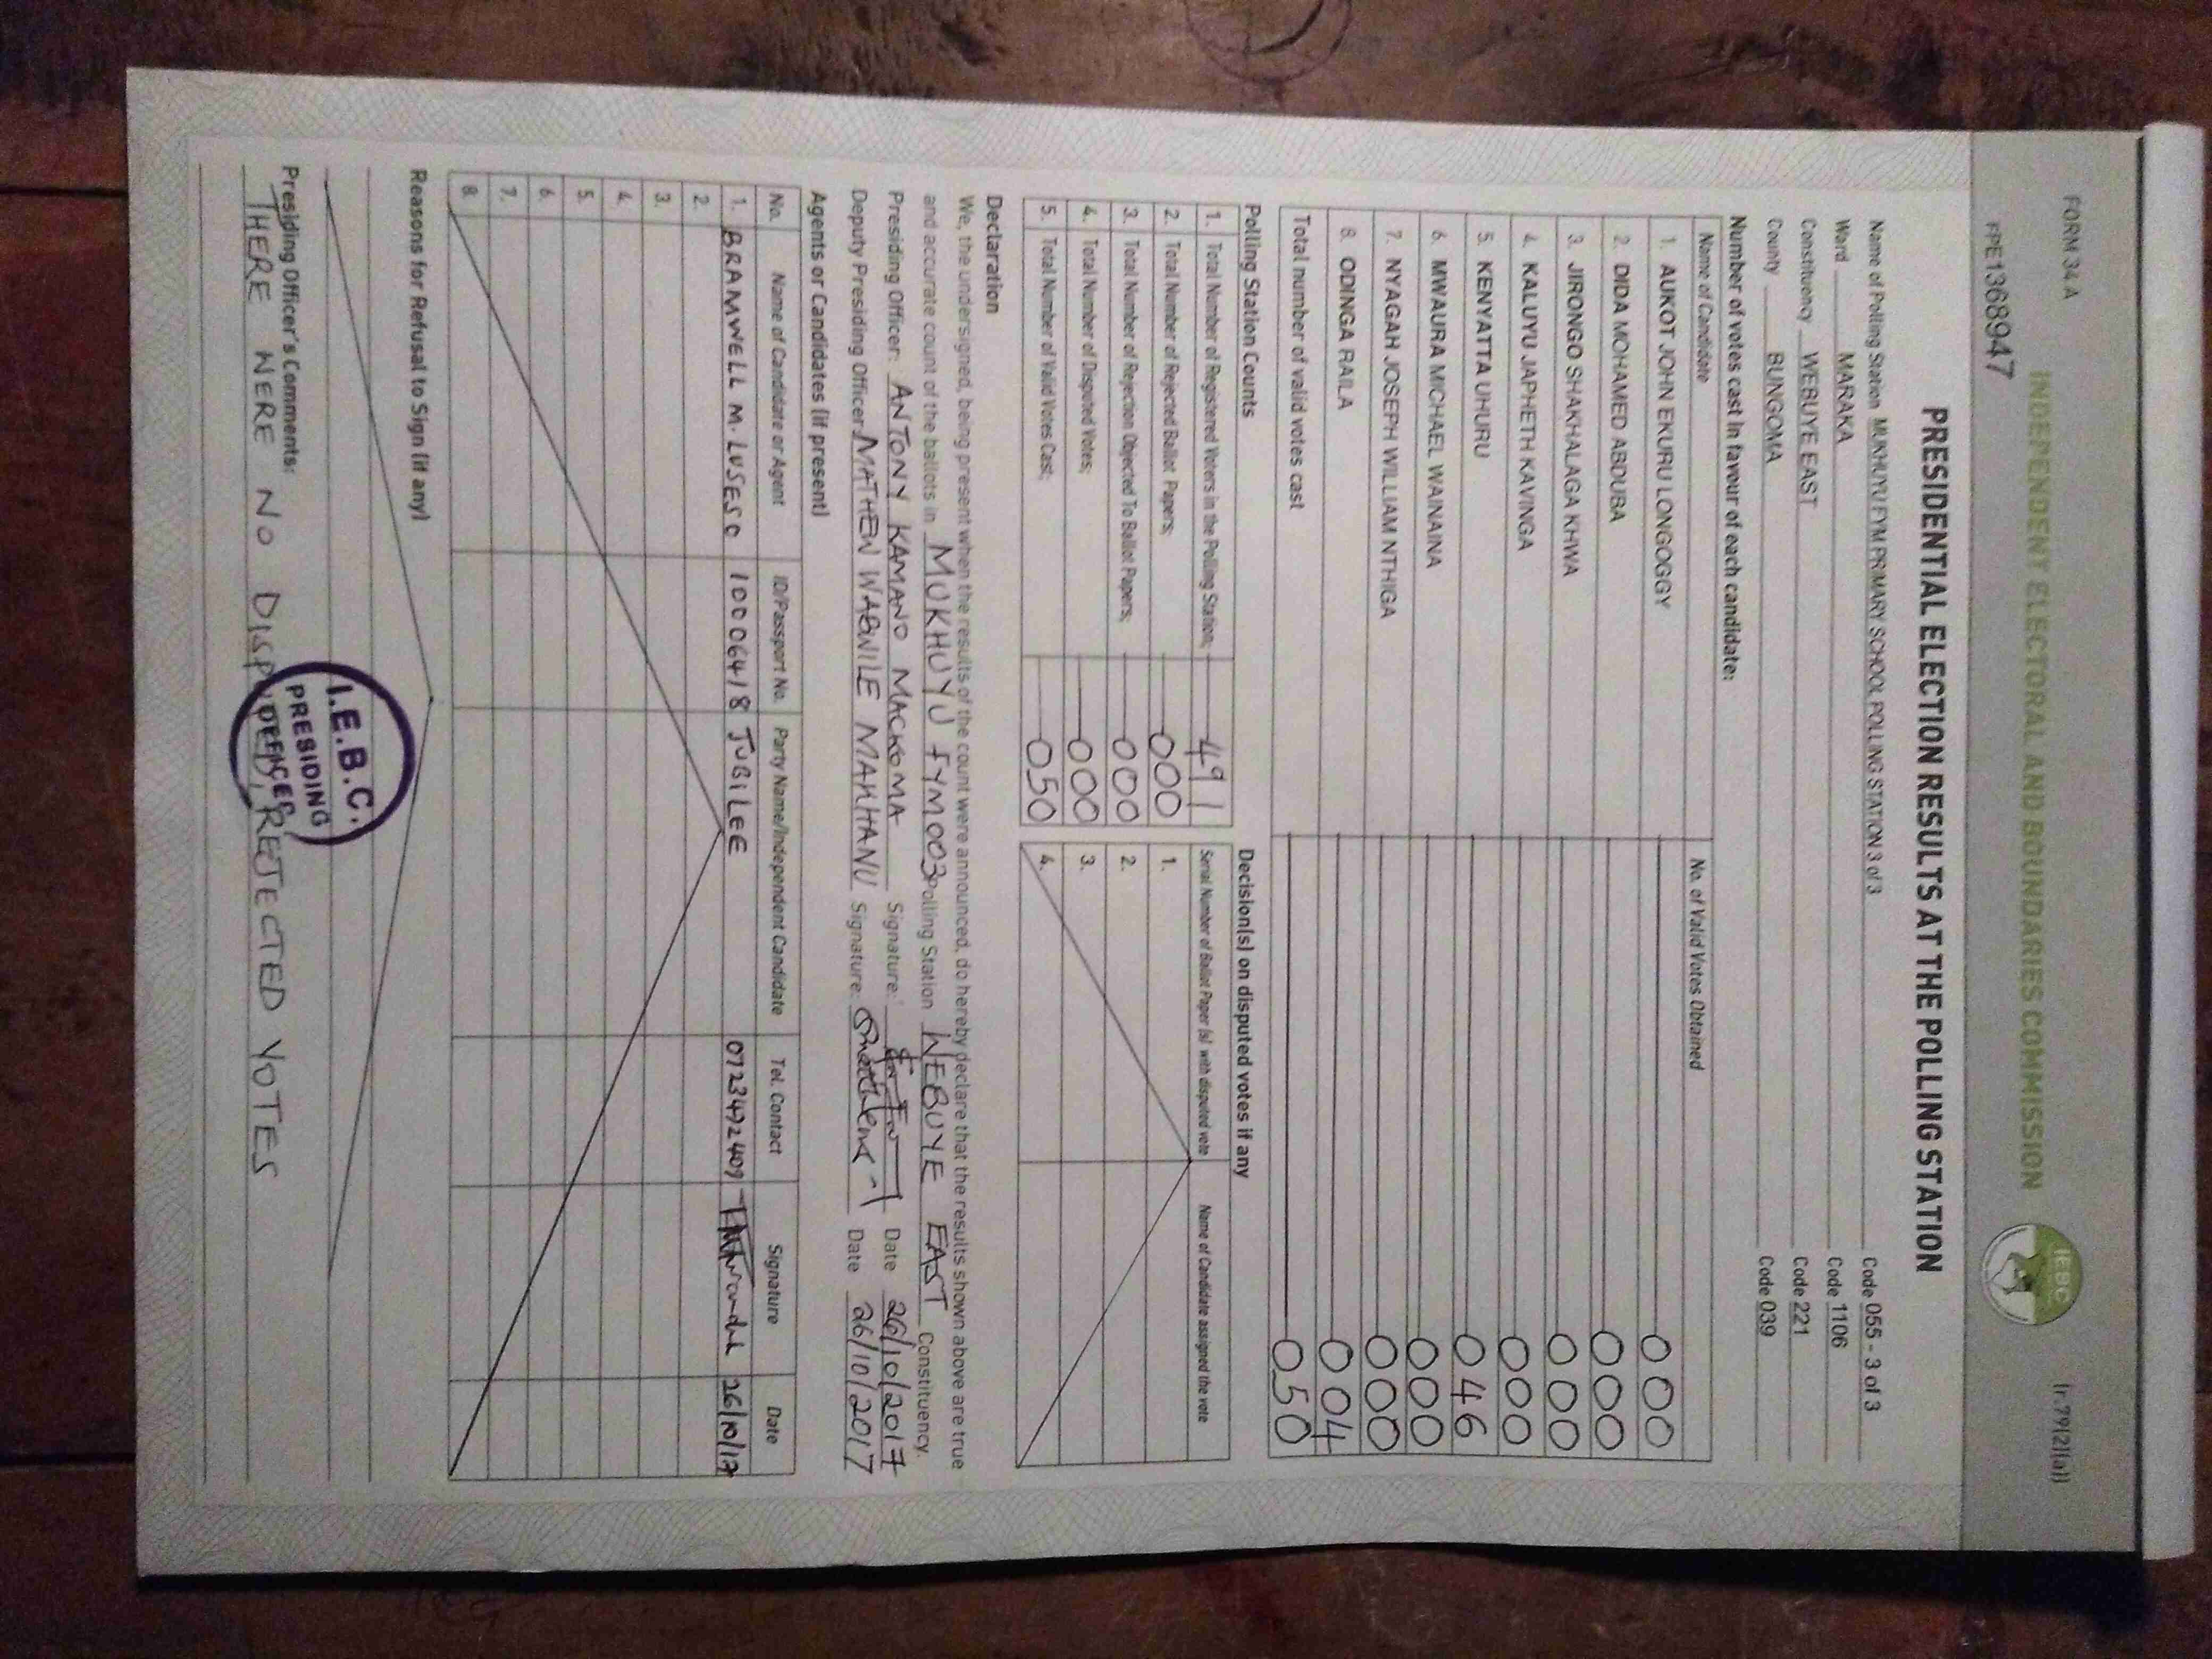 FORM 34 A
(r.79(2)(a))
INDEPENDENT ELECTORAL AND BOUNDARIES COMMISSION
IEBC
FPE1368947
PRESIDENTIAL ELECTION RESULTS AT THE POLLING STATION
Name of Polling Station MUKHUYU FYM PRIMARY SCHOOL POLLING STATION 3 of 3 Code 055 - 3 of 3
Ward MARAKA Code 1106
Constituency WEBUYE EAST Code 221
County BUNGOMA Code 039
Number of votes cast in favour of each candidate:
Name of Candidate No. of Valid Votes Obtained
1. AUKOT JOHN EKURU LONGOGGY 000
2. DIDA MOHAMED ABDUBA 000
3. JIRONGO SHAKHALAGA KHWA 000
4. KALUYU JAPHETH KAVINGA 000
5. KENYATTA UHURU 046
6. MWAURA MICHAEL WAINAINA 000
7. NYAGAH JOSEPH WILLIAM NTHIGA 000
8. ODINGA RAILA 004
Total number of valid votes cast 050
Polling Station Counts
1. Total Number of Registered Voters in the Polling Station; 491
2. Total Number of Rejected Ballot Papers; 000
3. Total Number of Rejection Objected To Ballot Papers; 000
4. Total Number of Disputed Votes; 000
5. Total Number of Valid Votes Cast; 050
Decision(s) on disputed votes if any
Serial Number of Ballot Paper (s) with disputed vote Name of Candidate assigned the vote
1.
2.
3.
4.
Declaration
We, the undersigned, being present when the results of the count were announced, do hereby declare that the results shown above are true
and accurate count of the ballots in MUKHUYU FYM 003 Polling Station WEBUYE EAST Constituency.
Presiding Officer: ANTONY KAMANO MACKOMA Signature: Date 26/10/2017
Deputy Presiding Officer: MATHEW WABWILE MAKHANU Signature: Date 26/10/2017
Agents or Candidates (if present)
No. Name of Candidate or Agent ID/Passport No. Party Name/Independent Candidate Tel. Contact Signature Date
1. BRAMWELL M. LUSESO 10006418 JUBILEE 0723492409 26/10/17
2.
3.
4.
5.
6.
7.
8.
Reasons for Refusal to Sign (if any)
Presiding Officer's Comments:
THERE WERE NO DISPUTED, REJECTED VOTES
I.E.B.C.
PRESIDING
OFFICER